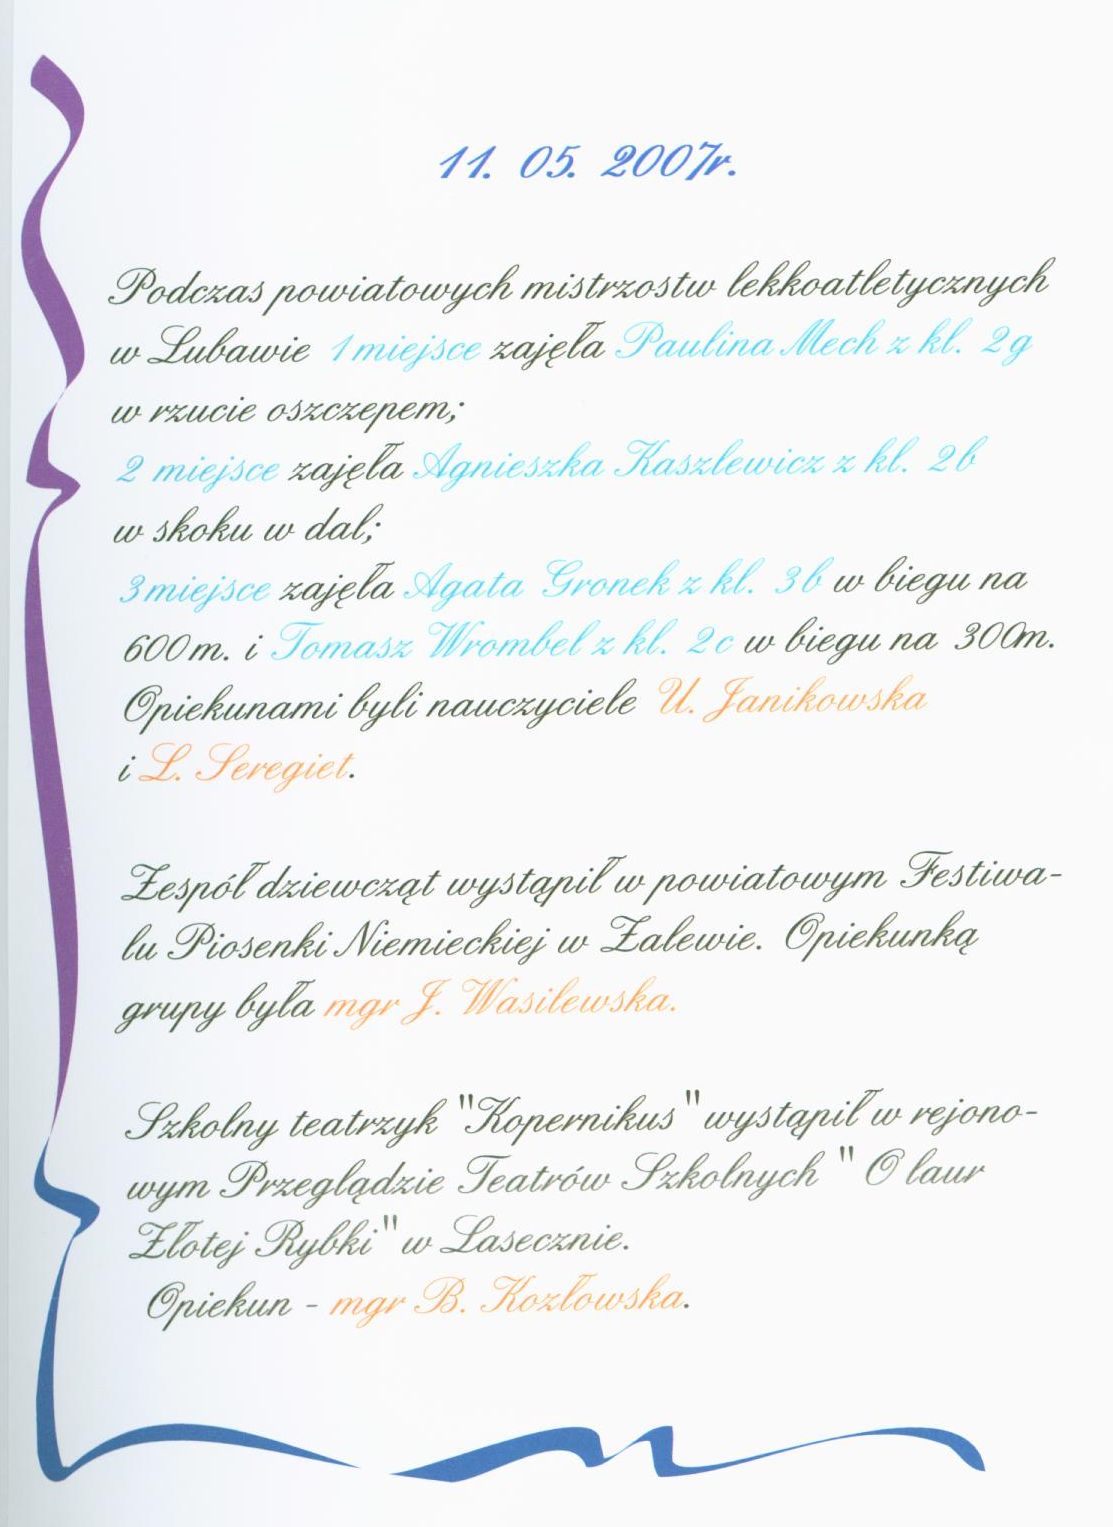 11. 05. 2007r.
Podczas powiatowych mistrzostw lekkoatletycznych
w Lubawie 1 miejsce zajęła Paulina Mech z kl. 2g
w rzucie oszczepem;
2 miejsce zajęła Agnieszka Kaszlewicz z kl. 2b
w skoku w dal;
3 miejsce zajęła Agata Gronek z kl. 3b w biegu na
600m. i Tomasz Wrombel z kl. 2c w biegu na 300m.
Opiekunami byli nauczyciele U. Janikowska
i L. Seregiet.
Zespół dziewcząt wystąpił w powiatowym Festiwa-
lu Piosenki Niemieckiej w Zalewie. Opiekunką
grupy była mgr J. Wasilewska.
Szkolny teatrzyk "Kopernikus" wystąpił w rejono-
wym Przeglądzie Teatrów Szkolnych " O laur
Złotej Rybki" w Lasecznie.
Opiekun - mgr B. Kozłowska.